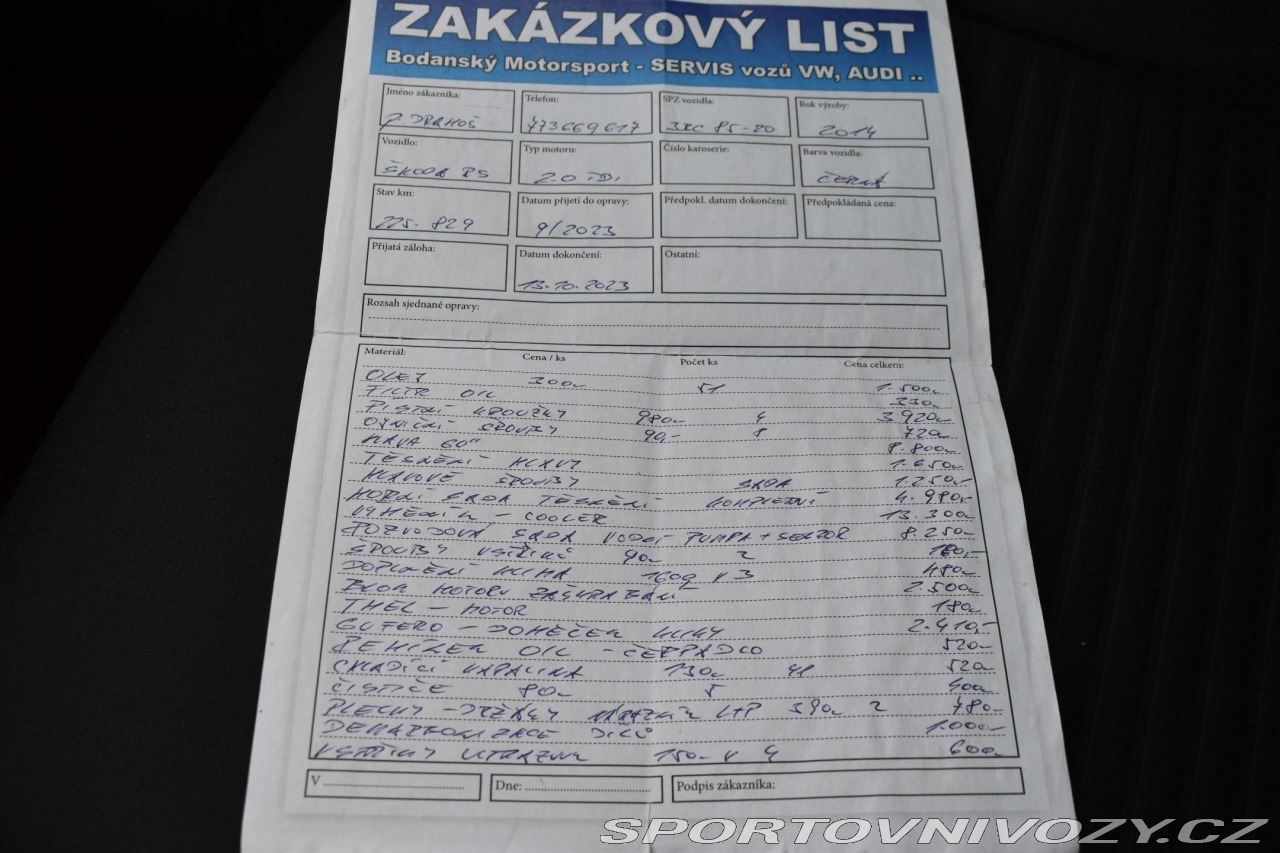 ZAKÁZKOVÝ LIST
Bodanský Motorsport - SERVIS vozů VW, AUDI ..
Jméno zákazníka: Telefon: SPZ vozidla: Rok výroby:
P. DRAHOŠ 773669617 85-20 2014
Vozidlo: Typ motoru: Číslo karoserie: Barva vozidla:
ŠKODA RS 2.0 TDI ČERNÁ
Stav km: Datum přijetí do opravy: Předpokl. datum dokončení: Předpokládaná cena:
225.829 9/2023
Přijatá záloha: Datum dokončení: Ostatní:
13.10.2023
Rozsah sjednané opravy:
Materiál: Cena / ks Počet ks Cena celkem:
OLEJ 300,- 5l 1.500,-
FILTR OIL 330,-
PÍSTNÍ KROUŽKY 980,- 4 3.920,-
OJNIČNÍ ŠROUBY 90,- 8 720,-
HLAVA 8.800,-
TĚSNĚNÍ HLAVY 1.650,-
HLAVOVÉ ŠROUBY SADA 1.250,-
HORNÍ SADA TĚSNĚNÍ KOMPLETNÍ 4.980,-
VÝMĚNÍK - COOLER 13.300,-
ROZVODOVÁ SADA VODNÍ PUMPA + SENZOR 8.250,-
ŠROUBY VSTŘIKŮ 90,- 2 180,-
DOPLNĚNÍ KLIMA 160g v 3 480,-
BLOK MOTORU 2.500,-
TMEL - MOTOR 180,-
GUFERO - DOMEČEK KLIKY 2.410,-
ŘEMÍNEK OIL - ČERPADLO 520,-
CHLADÍCÍ KAPALINA 130,- 4l 520,-
ČISTIČE 80,- 5 400,-
PLECHY - DRŽÁKY NÁRAZNÍK L+P 390,- 2 780,-
DEKARBONIZACE DÍLŮ 1.000,-
VSTŘIKY ULTRAZVUK 150,- v 4 600,-
V Dne: Podpis zákazníka:
SPORTOVNIVOZY.CZ